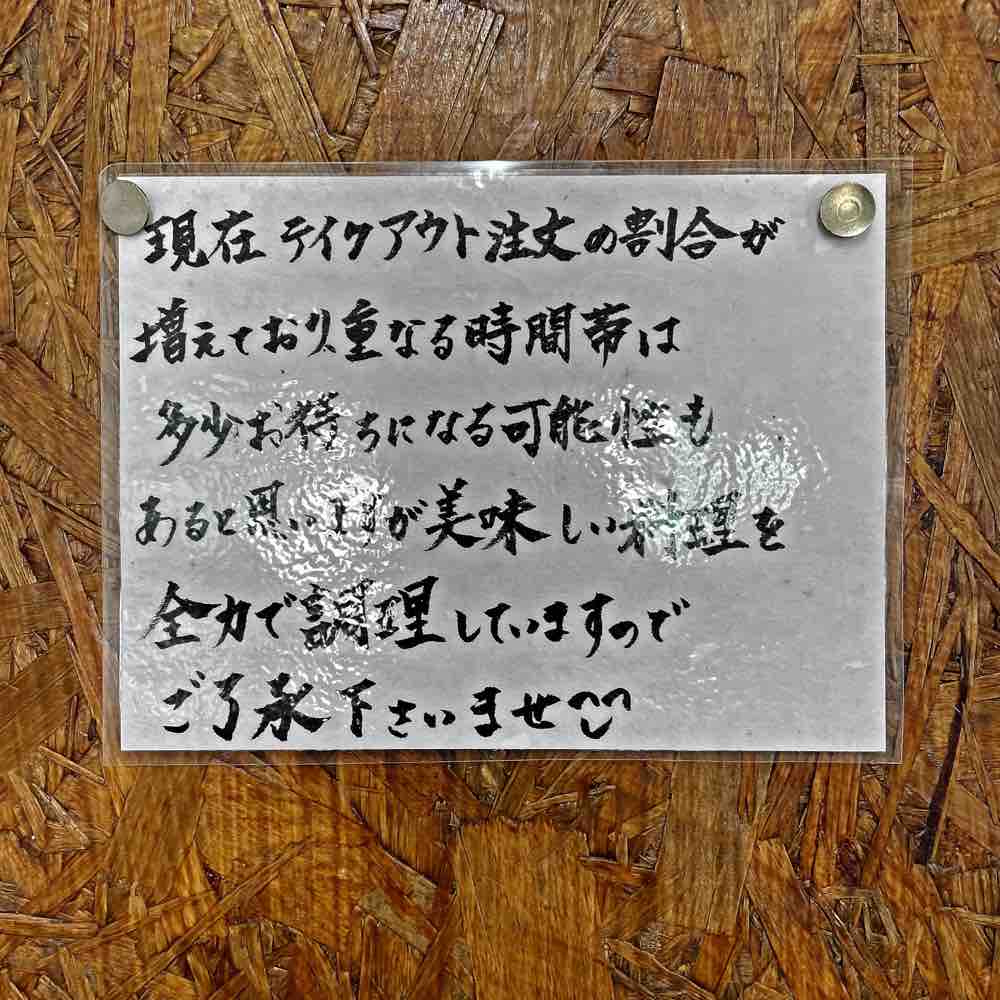 現在テイクアウト注文の割合が
増えており重なる時間帯は
多少お待ちになる可能性も
あると思いますが美味しい料理を
全力で調理していますので
ご了承下さいませ